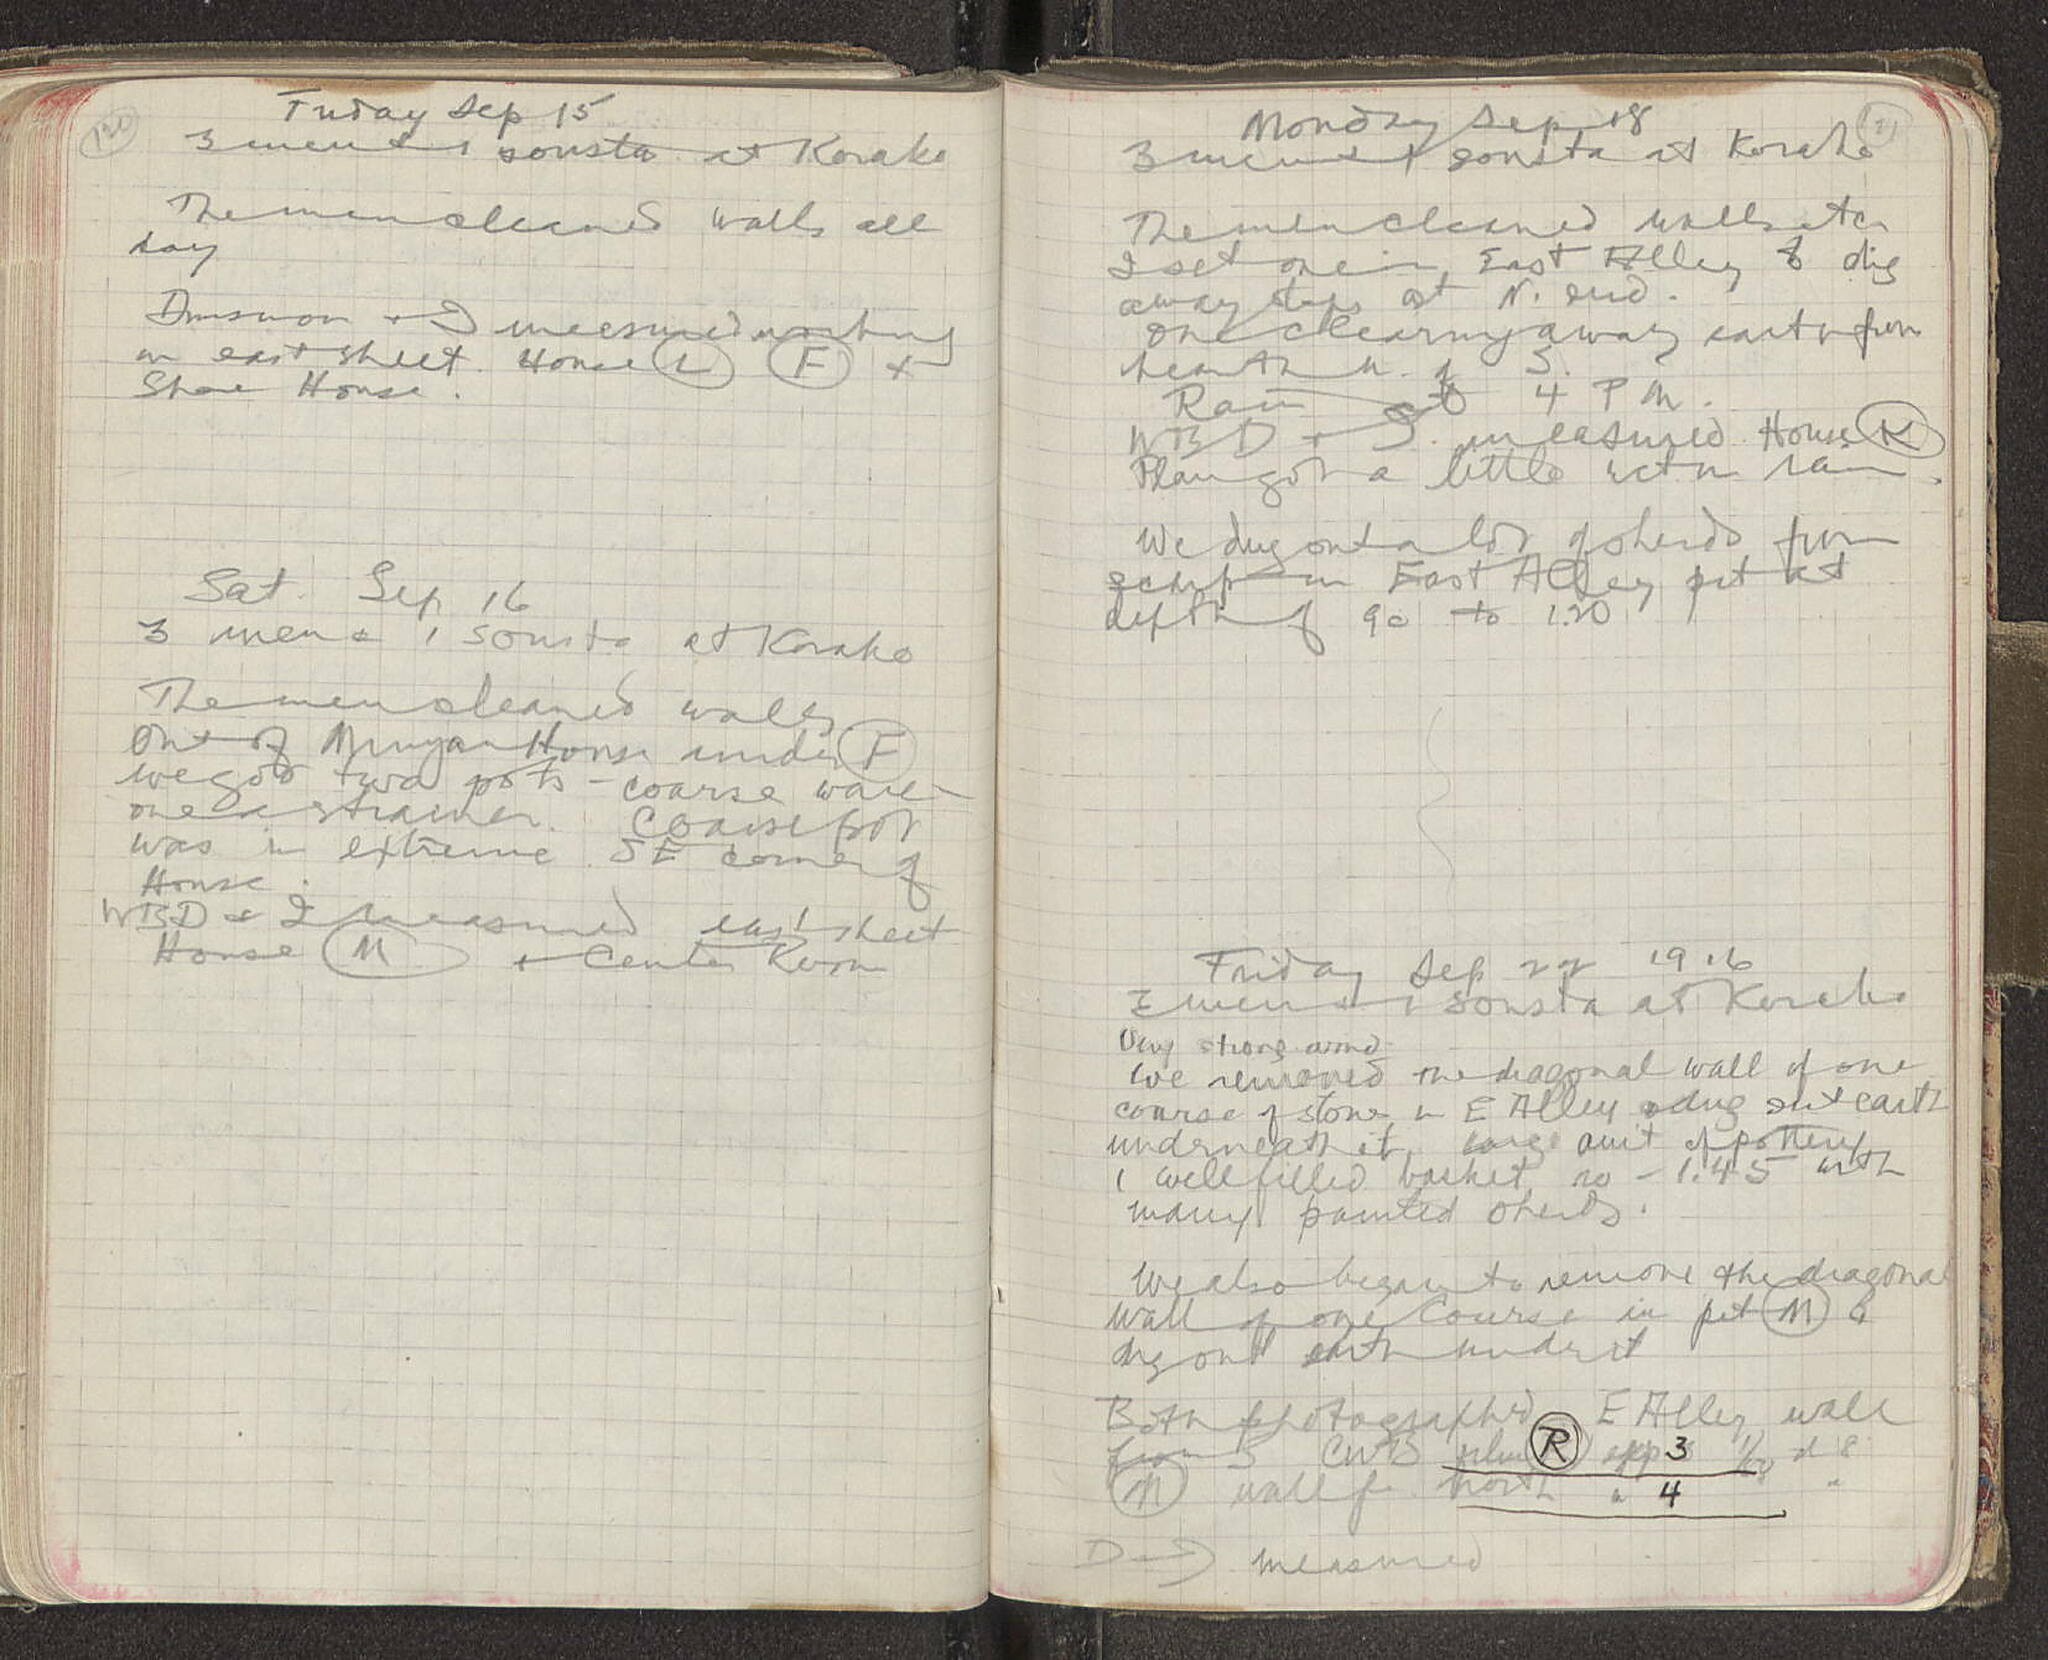 120
Friday Sep 15
3 men + 1 sousta at Korako
The men cleaned walls all
day
Dinsmoor + I measured working
on east sheet. House L F +
Shoe House.
Sat. Sep 16
3 men + 1 sousta at Korako
The men cleaned walls
Out of Minyan House under F
we got two pots - coarse ware -
one a strainer. Coarse pot
was in extreme SE corner of
House.
WBD + I measured east sheet
House M + Center Room
121
Monday Sep 18
3 men + 1 sousta at Korako
The men cleaned walls etc
I set one in East Alley to dig
away steps at N. end.
One clearing away earth from
hearth n. of S.
Rain at 4 PM.
WBD + I measured House K
Plan got a little wet in rain.
We dug out a lot of sherds from
scarp in East Alley pit at
depth of 90 to 1.20
Friday Sep 22 1916
3 men + 1 sousta at Korako
Very strong wind
We removed the diagonal wall of one
course of stone in E Alley + dug out earth
underneath it, large amt of pottery
1 well filled basket to - 1.45 with
many painted sherds.
We also began to remove the diagonal
wall of one course in pit M &
dig out earth under it
Both photographed E Alley wall
from S CWB film R exp 3 d 8
M wall fr north " 4 "
D + I measured